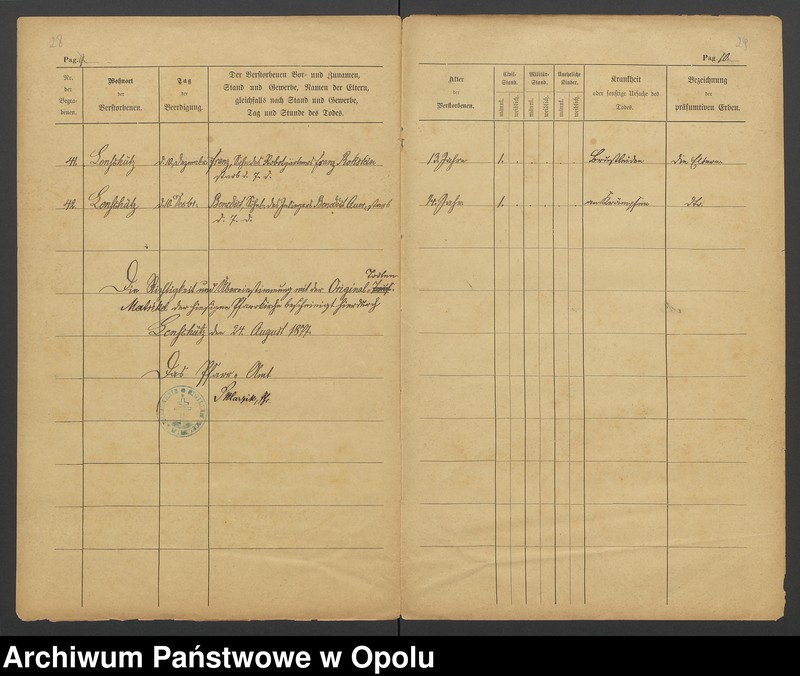 28
Pag. 9.
Nr. der Begra- benen.
Wohnort der Verstorbenen.
Tag der Beerdigung.
Der Verstorbenen Vor- und Zunamen,
Stand und Gewerbe, Namen der Eltern,
gleichfalls nach Stand und Gewerbe,
Tag und Stunde des Todes.
41. Lenschütz d. 10. Dezember Franz, Sohn des Franz
starb d. 7. d.
42. Lenschütz Benedict, Sohn des Inliegers Benedict, starb
d. 7. d.
Todten
Die Richtigkeit und Übereinstimmung mit der Original-Tauf-
Matrikel der hiesigen Pfarrkirche bescheinigt hierdurch
Lenschütz den 24. August 187
Das Pfarr-Amt
29
Pag. 10.
Alter der Verstorbenen.
Civil- Stand.
männl. weiblich.
Militär- Stand.
männl. weiblich.
Uneheliche Kinder.
männl. weiblich.
Krankheit
oder sonstige Ursache des
Todes.
Bezeichnung
der
präsumtiven Erben.
13 Jahre 1. Brustleiden die Eltern
Jahr 1. an Krämpfen dto.
Archiwum Państwowe w Opolu